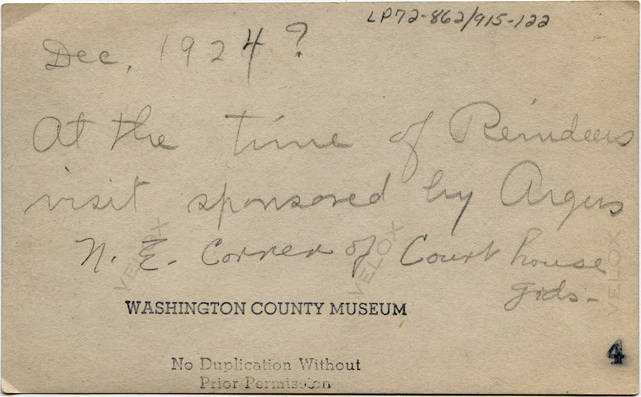 LP72-862/915-122
Dec, 1924?
At the time of Reindeers
visit sponsored by Argus
N. E. Corner of Court house
gids-
VELOX
VELOX
VELOX
WASHINGTON COUNTY MUSEUM
No Duplication Without
Prior Permission
4